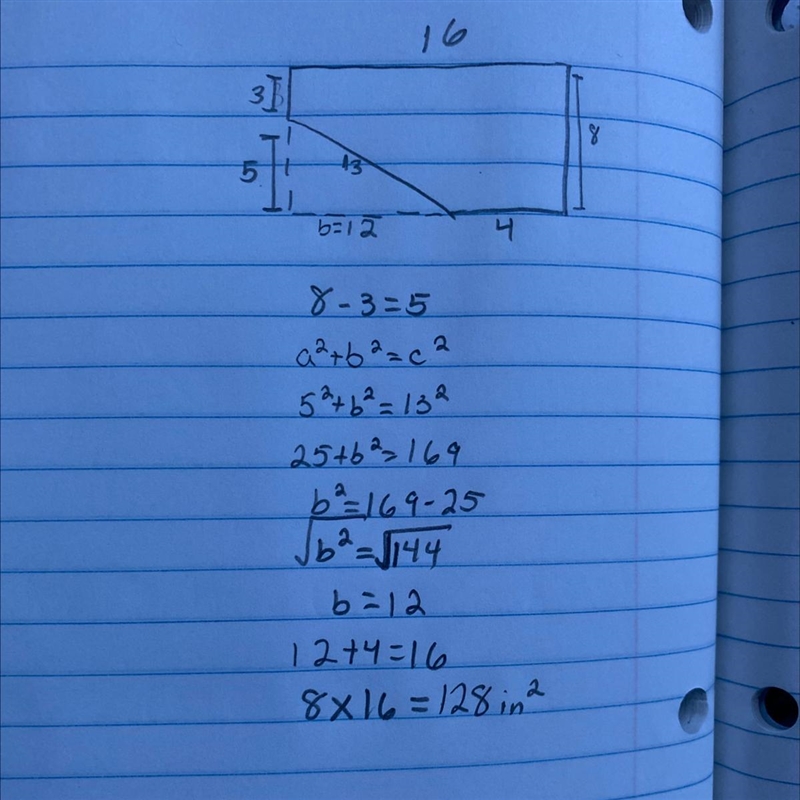 16
3
8
5
13
b=12
4
8-3=5
a²+b²=c²
5²+b²=13²
25+b²=169
b²=169-25
√b²=√144
b=12
12+4=16
8×16=128in²